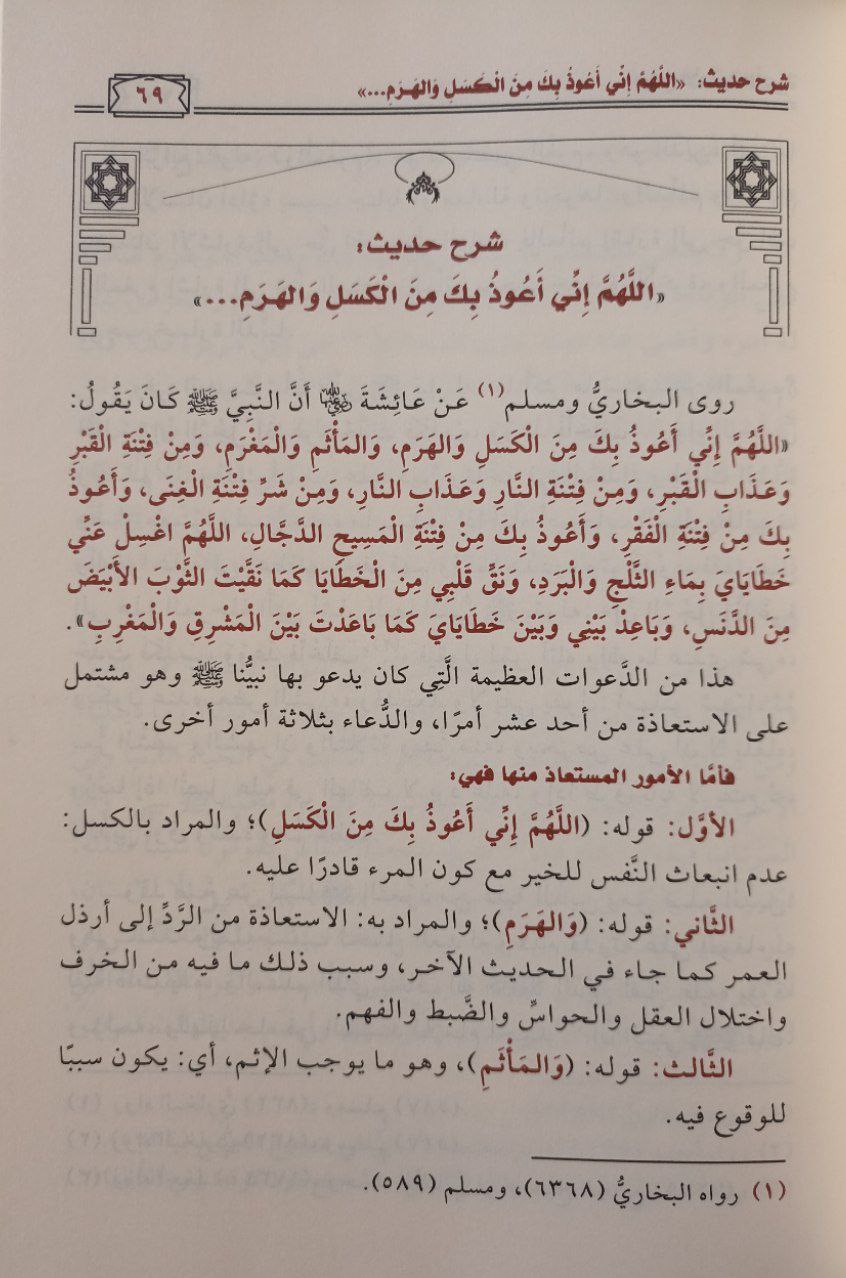 شرح حديث: «اللَّهُمَّ إِنِّي أَعُوذُ بِكَ مِنَ الْكَسَلِ وَالهَرَمِ...»
٦٩
شرح حديث:
«اللَّهُمَّ إِنِّي أَعُوذُ بِكَ مِنَ الْكَسَلِ وَالهَرَمِ...»
روى البخاريُّ ومسلم(١) عَنْ عَائِشَةَ رضي الله عنها أَنَّ النَّبِيَّ ﷺ كَانَ يَقُولُ:
«اللَّهُمَّ إِنِّي أَعُوذُ بِكَ مِنَ الْكَسَلِ وَالهَرَمِ، وَالمَأْثَمِ وَالْمَغْرَمِ، وَمِنْ فِتْنَةِ الْقَبْرِ
وَعَذَابِ الْقَبْرِ، وَمِنْ فِتْنَةِ النَّارِ وَعَذَابِ النَّارِ، وَمِنْ شَرِّ فِتْنَةِ الْغِنَى، وَأَعُوذُ
بِكَ مِنْ فِتْنَةِ الْفَقْرِ، وَأَعُوذُ بِكَ مِنْ فِتْنَةِ الْمَسِيحِ الدَّجَّالِ، اللَّهُمَّ اغْسِلْ عَنِّي
خَطَايَايَ بِمَاءِ الثَّلْجِ وَالْبَرَدِ، وَنَقِّ قَلْبِي مِنَ الْخَطَايَا كَمَا نَقَّيْتَ الثَّوْبَ الأَبْيَضَ
مِنَ الدَّنَسِ، وَبَاعِدْ بَيْنِي وَبَيْنَ خَطَايَايَ كَمَا بَاعَدْتَ بَيْنَ الْمَشْرِقِ وَالْمَغْرِبِ».
هذا من الدَّعوات العظيمة الَّتِي كان يدعو بها نبيُّنا ﷺ وهو مشتمل
على الاستعاذة من أحد عشر أمرًا، والدُّعاء بثلاثة أمور أخرى.
فأمَّا الأمور المستعاذ منها فهي:
الأوَّل: قوله: (اللَّهُمَّ إِنِّي أَعُوذُ بِكَ مِنَ الْكَسَلِ)؛ والمراد بالكسل:
عدم انبعاث النَّفس للخير مع كون المرء قادرًا عليه.
الثَّاني: قوله: (وَالهَرَمِ)؛ والمراد به: الاستعاذة من الرَّدِّ إلى أرذل
العمر كما جاء في الحديث الآخر، وسبب ذلك ما فيه من الخرف
واختلال العقل والحواسِّ والضَّبط والفهم.
الثَّالث: قوله: (وَالمَأْثَمِ)، وهو ما يوجب الإثم، أي: يكون سببًا
للوقوع فيه.
(١) رواه البخاريُّ (٦٣٦٨)، ومسلم (٥٨٩).